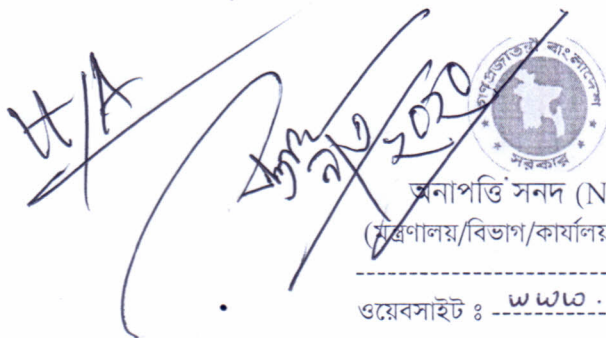 H/A
২০২০
গণপ্রজাতন্ত্রী বাংলাদেশ
সরকার
অনাপত্তি সনদ (N
(মন্ত্রণালয়/বিভাগ/কার্যালয়
ওয়েবসাইট ঃ www.